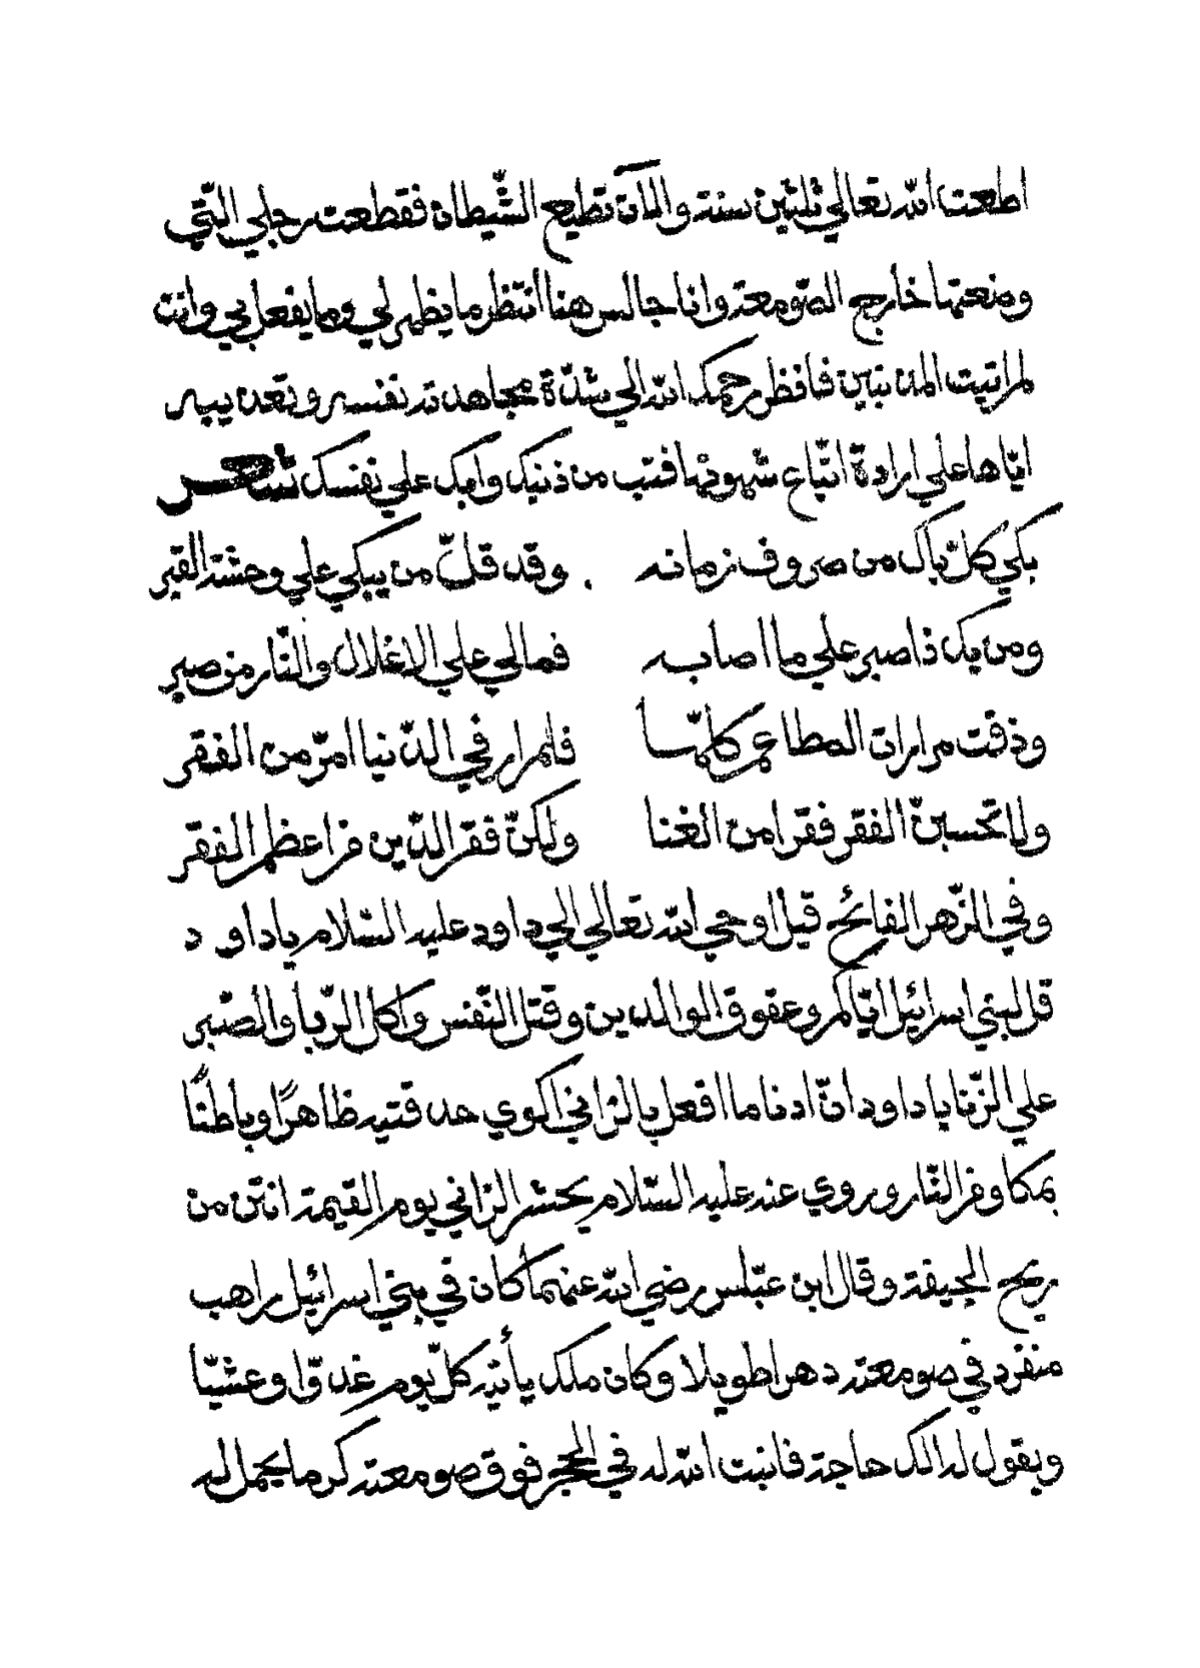 اطعت الله تعالي ثلثين سنة والآن تطيع الشّيطان فقطعت رجلي الّتي
وضعتها خارج الصّومعة وانا جالس هنا انتظر ما يظهر لي وما يفعل بي وانت
لم اتيت المذنبين فانظر رحمك الله الي شدّة مجاهدته نفسه وتعذيبه
ايّاها علي ارادة اتّباع شهوتها فتب من ذنبك وابك علي نفسك شعر
بكي كلّ باك من صروف زمانه وقد قلّ من يبكي علي وحشة القبر
ومن يك ذا صبر علي ما اصابه فمالي علي الاغلال والنّار من صبر
وذقت مرارات المطاعم كلّها فلم ار في الدّنيا امرّ من الفقر
ولا تحسبنّ الفقر فقرا من الغنا ولكنّ فقر الدّين من اعظم الفقر
وفي الزّهر الفائح قيل اوحي الله تعالي الي داود عليه السّلام يا داود
قل لبني اسرائيل ايّاكم وعقوق الوالدين وقتل النّفس واكل الرّبا والصّبر
علي الزّنا يا داود انّ ادنا ما افعل بالزاني اكوي حدقتيه ظاهرًا وباطنًا
بمكاو من النّار وروي عنه عليه السّلام يحشر الزاني يوم القيمة انتن من
ريح الجيفة وقال ابن عبّاس رضي الله عنهما كان في بني اسرائيل راهب
منفرد في صومعته دهرا طويلا وكان ملك يأتيه كلّ يوم غدوّا وعشيّا
ويقول له الك حاجة فانبت الله له في الحجر فوق صومعته كرما يحمل له